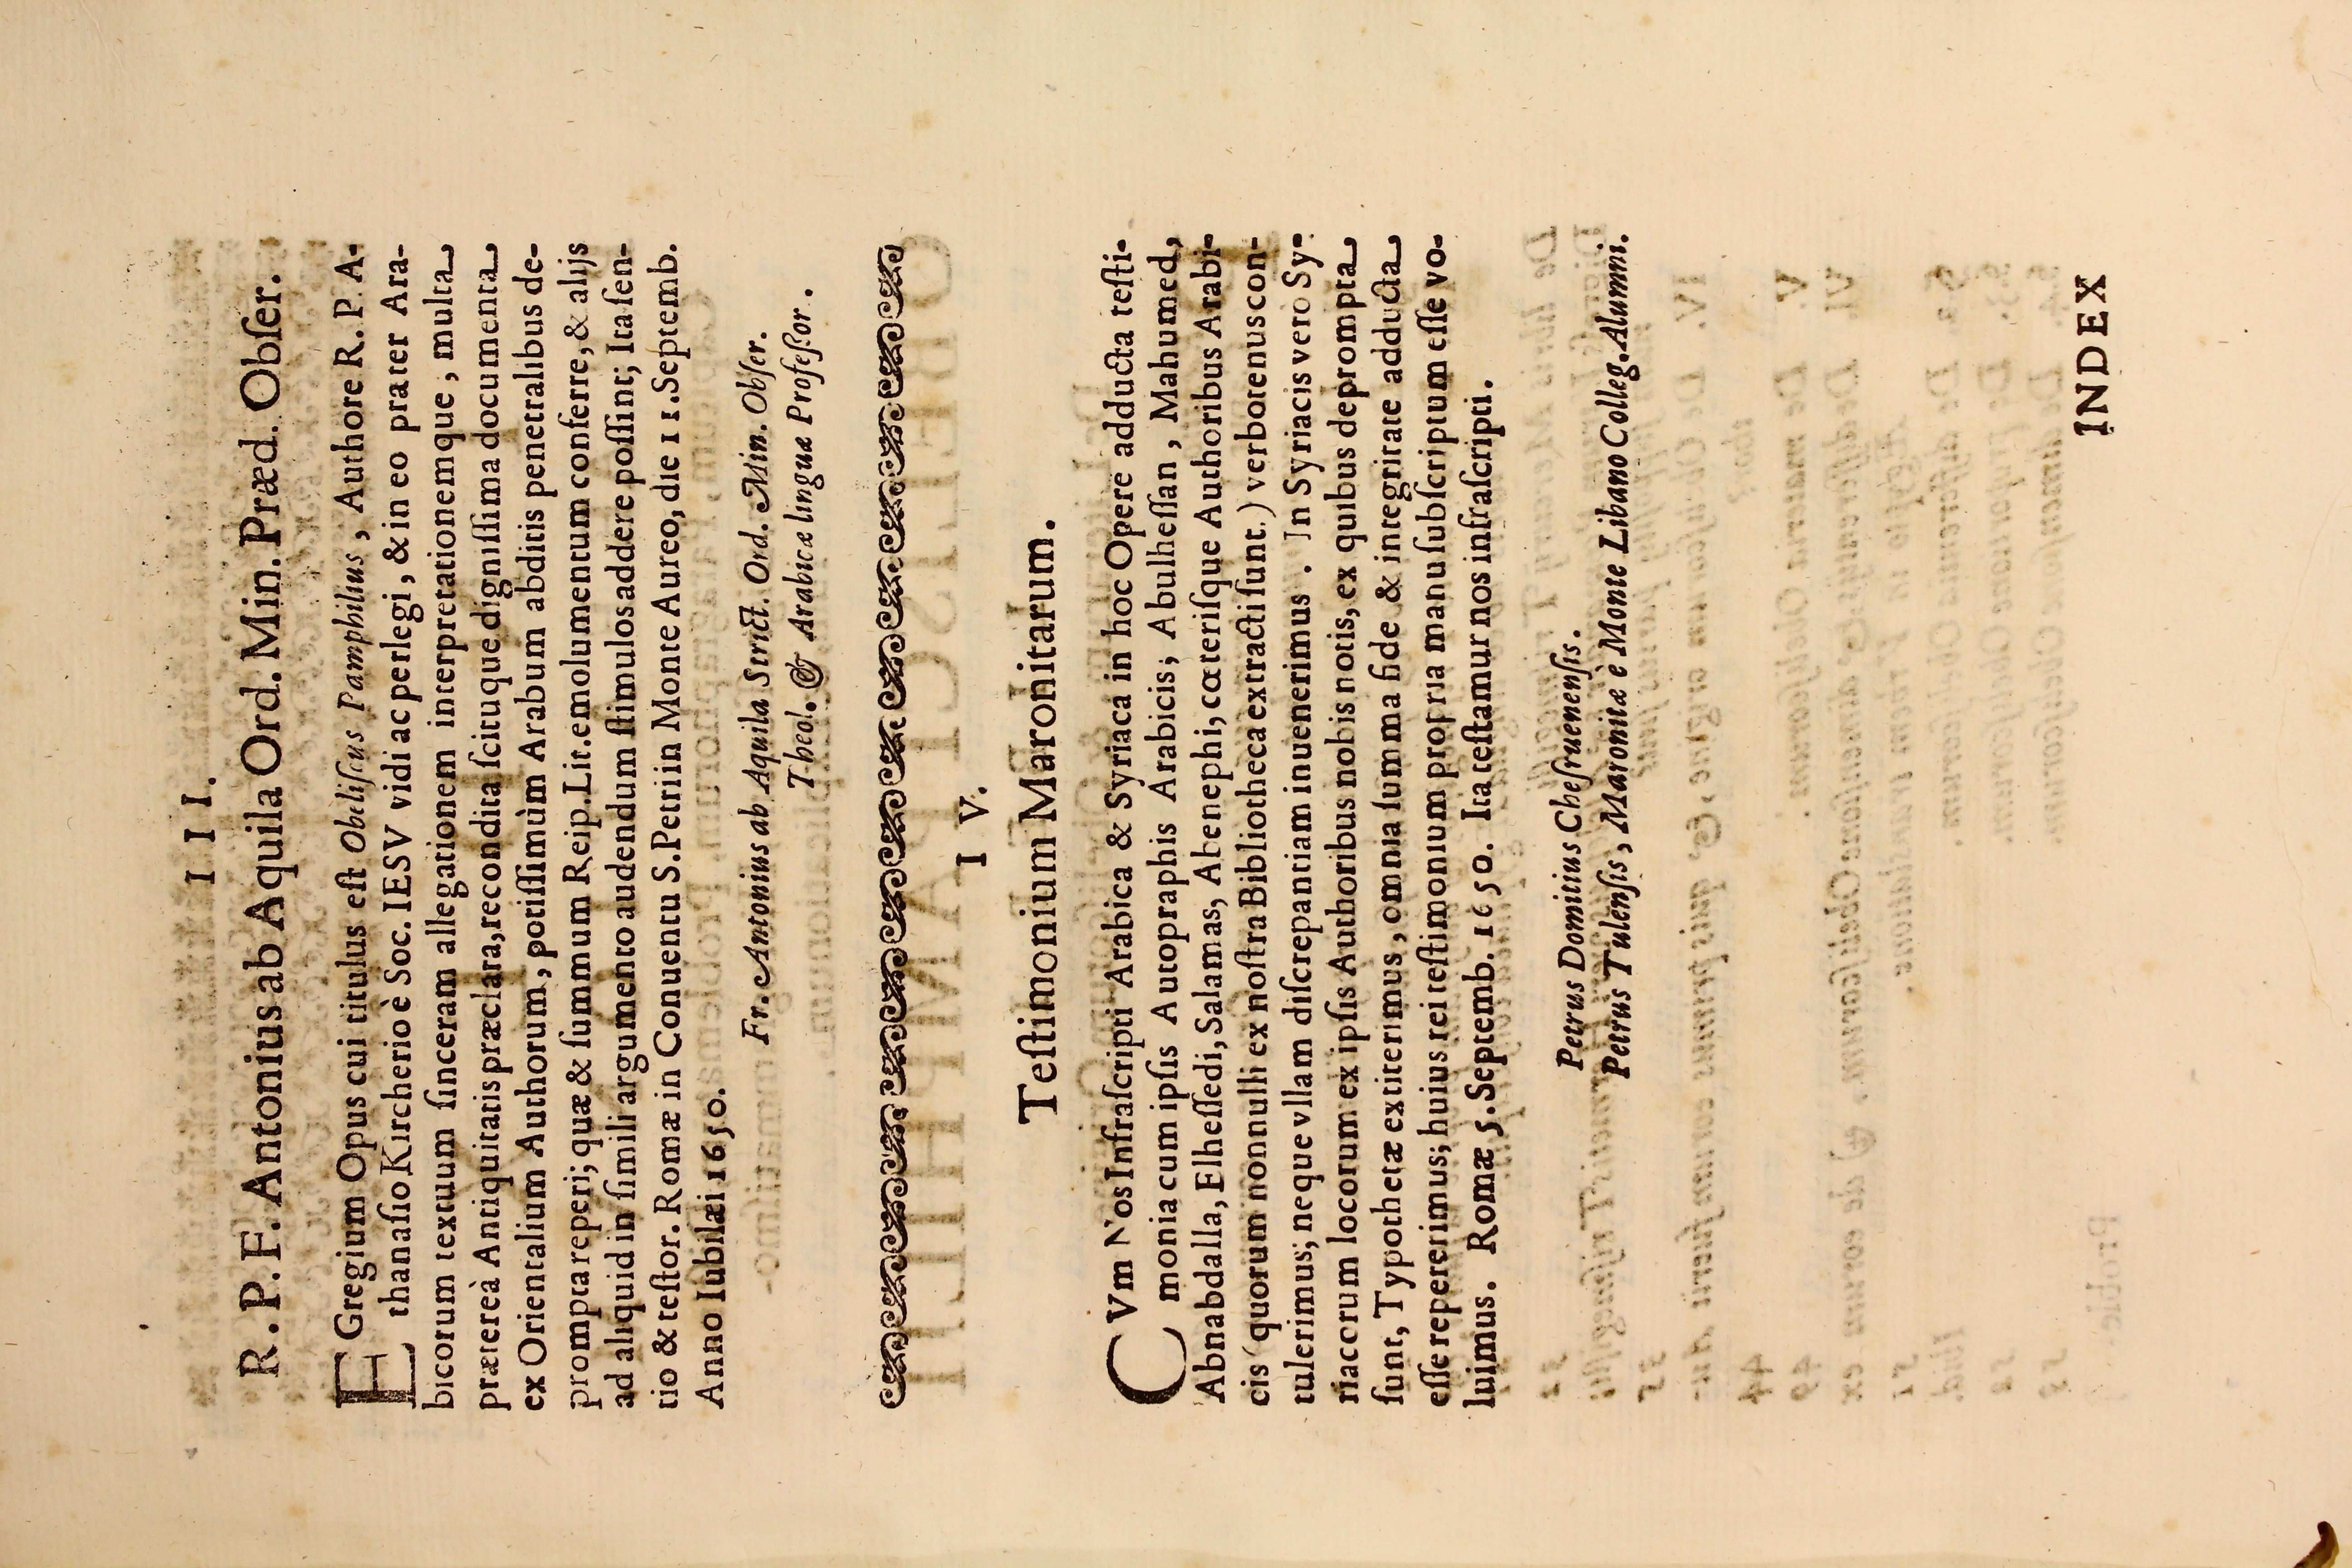 I I I.
R. P. F. Antonius ab Aquila Ord. Min. Præd. Obſer.
EGregium Opus cui titulus eſt Obeliſcus Pamphilius, Authore R. P. A-
thanaſio Kircherio è Soc. IESV vidi ac perlegi, & in eo præter Ara-
bicorum textuum ſinceram allegationem interpretationemque, multa
prætereà Antiquitatis præclara, recondita ſcituque digniſſima documenta
ex Orientalium Authorum, potiſſimùm Arabum abditis penetralibus de-
prompta reperi; quæ & ſummum Reip. Lit. emolumentum conferre, & alijs
ad aliquid in ſimili argumento audendum ſtimulos addere poſſint; Ita ſen-
tio & teſtor. Romæ in Conuentu S. Petri in Monte Aureo, die 11. Septemb.
Anno Iubilæi 1650.
Fr. Antonius ab Aquila Strict. Ord. Min. Obſer.
Theol. & Arabicæ linguæ Profeſſor.
I V.
Teſtimonium Maronitarum.
CVm Nos Infraſcripti Arabica & Syriaca in hoc Opere adducta teſti-
monia cum ipſis Autopraphis Arabicis; Abulheſſan, Mahumed,
Abnabdalla, Elheſſedi, Salamas, Abenephi, cœteriſque Authoribus Arabi-
cis (quorum nonnulli ex noſtra Bibliotheca extracti ſunt.) verbotenus con-
tulerimus; neque vllam diſcrepantiam inuenerimus. In Syriacis vero Sy-
riacorum locorum ex ipſis Authoribus nobis notis, ex quibus deprompta
ſunt, Typothetæ extiterimus, omnia ſumma fide & integritate adducta
eſſe repererimus; huius rei teſtimonium propria manu ſubſcriptum eſſe vo-
luimus. Romæ 5. Septemb. 1650. Ita teſtamur nos infraſcripti.
Petrus Domitius Cheſruenenſis.
Petrus Tulenſis, Maronitæ è Monte Libano Colleg. Alumni.
INDEX